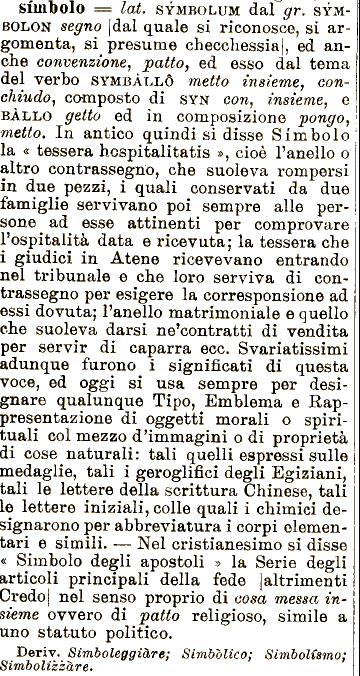 símbolo = lat. SÝMBOLUM dal gr. SÝM-
BOLON segno |dal quale si riconosce, si ar-
gomenta, si presume checchessia|, ed an-
che convenzione, patto, ed esso dal tema
del verbo SYMBÀLLÔ metto insieme, con-
chiudo, composto di SYN con, insieme, e
BÀLLO getto ed in composizione pongo,
metto. In antico quindi si disse Simbolo
la « tessera hospitalitatis », cioè l'anello o
altro contrassegno, che suoleva rompersi
in due pezzi, i quali conservati da due
famiglie servivano poi sempre alle per-
sone ad esse attinenti per comprovare
l'ospitalità data e ricevuta; la tessera che
i giudici in Atene ricevevano entrando
nel tribunale e che loro serviva di con-
trassegno per esigere la corresponsione ad
essi dovuta; l'anello matrimoniale e quello
che suoleva darsi ne'contratti di vendita
per servir di caparra ecc. Svariatissimi
adunque furono i significati di questa
voce, ed oggi si usa sempre per desi-
gnare qualunque Tipo, Emblema e Rap-
presentazione di oggetti morali o spiri-
tuali col mezzo d'immagini o di proprietà
di cose naturali: tali quelli espressi sulle
medaglie, tali i geroglifici degli Egiziani,
tali le lettere della scrittura Chinese, tali
le lettere iniziali, colle quali i chimici de-
signarono per abbreviatura i corpi elemen-
tari e simili. — Nel cristianesimo si disse
« Simbolo degli apostoli » la Serie degli
articoli principali della fede |altrimenti
Credo| nel senso proprio di cosa messa in-
sieme ovvero di patto religioso, simile a
uno statuto politico.
Deriv. Simboleggiàre; Simbòlico; Simbolísmo;
Simbolizzàre.